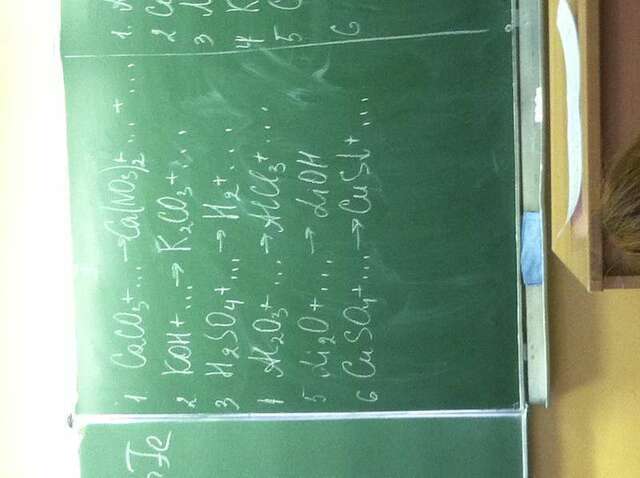 Fe
1 CaCO₃+... → Ca(NO₃)₂+...+...
2 KOH+... → K₂CO₃+...
3 H₂SO₄+... → H₂+...
4 Al₂O₃+... → AlCl₃+...
5 Li₂O+... → LiOH
6 CuSO₄+... → CuS↓+...
1.
2
3
4 K
5
6